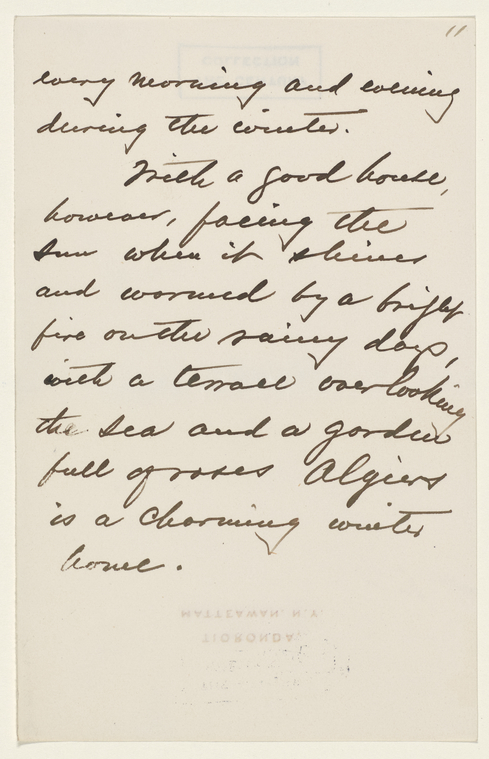 11
every morning and evening
during the winter.
With a good house,
however, facing the
sun when it shines
and warmed by a bright
fire on the rainy days,
with a terrace overlooking
the sea and a garden
full of roses Algiers
is a charming winter
home.
MATTEAWAN. N.Y.
TIORONDA.